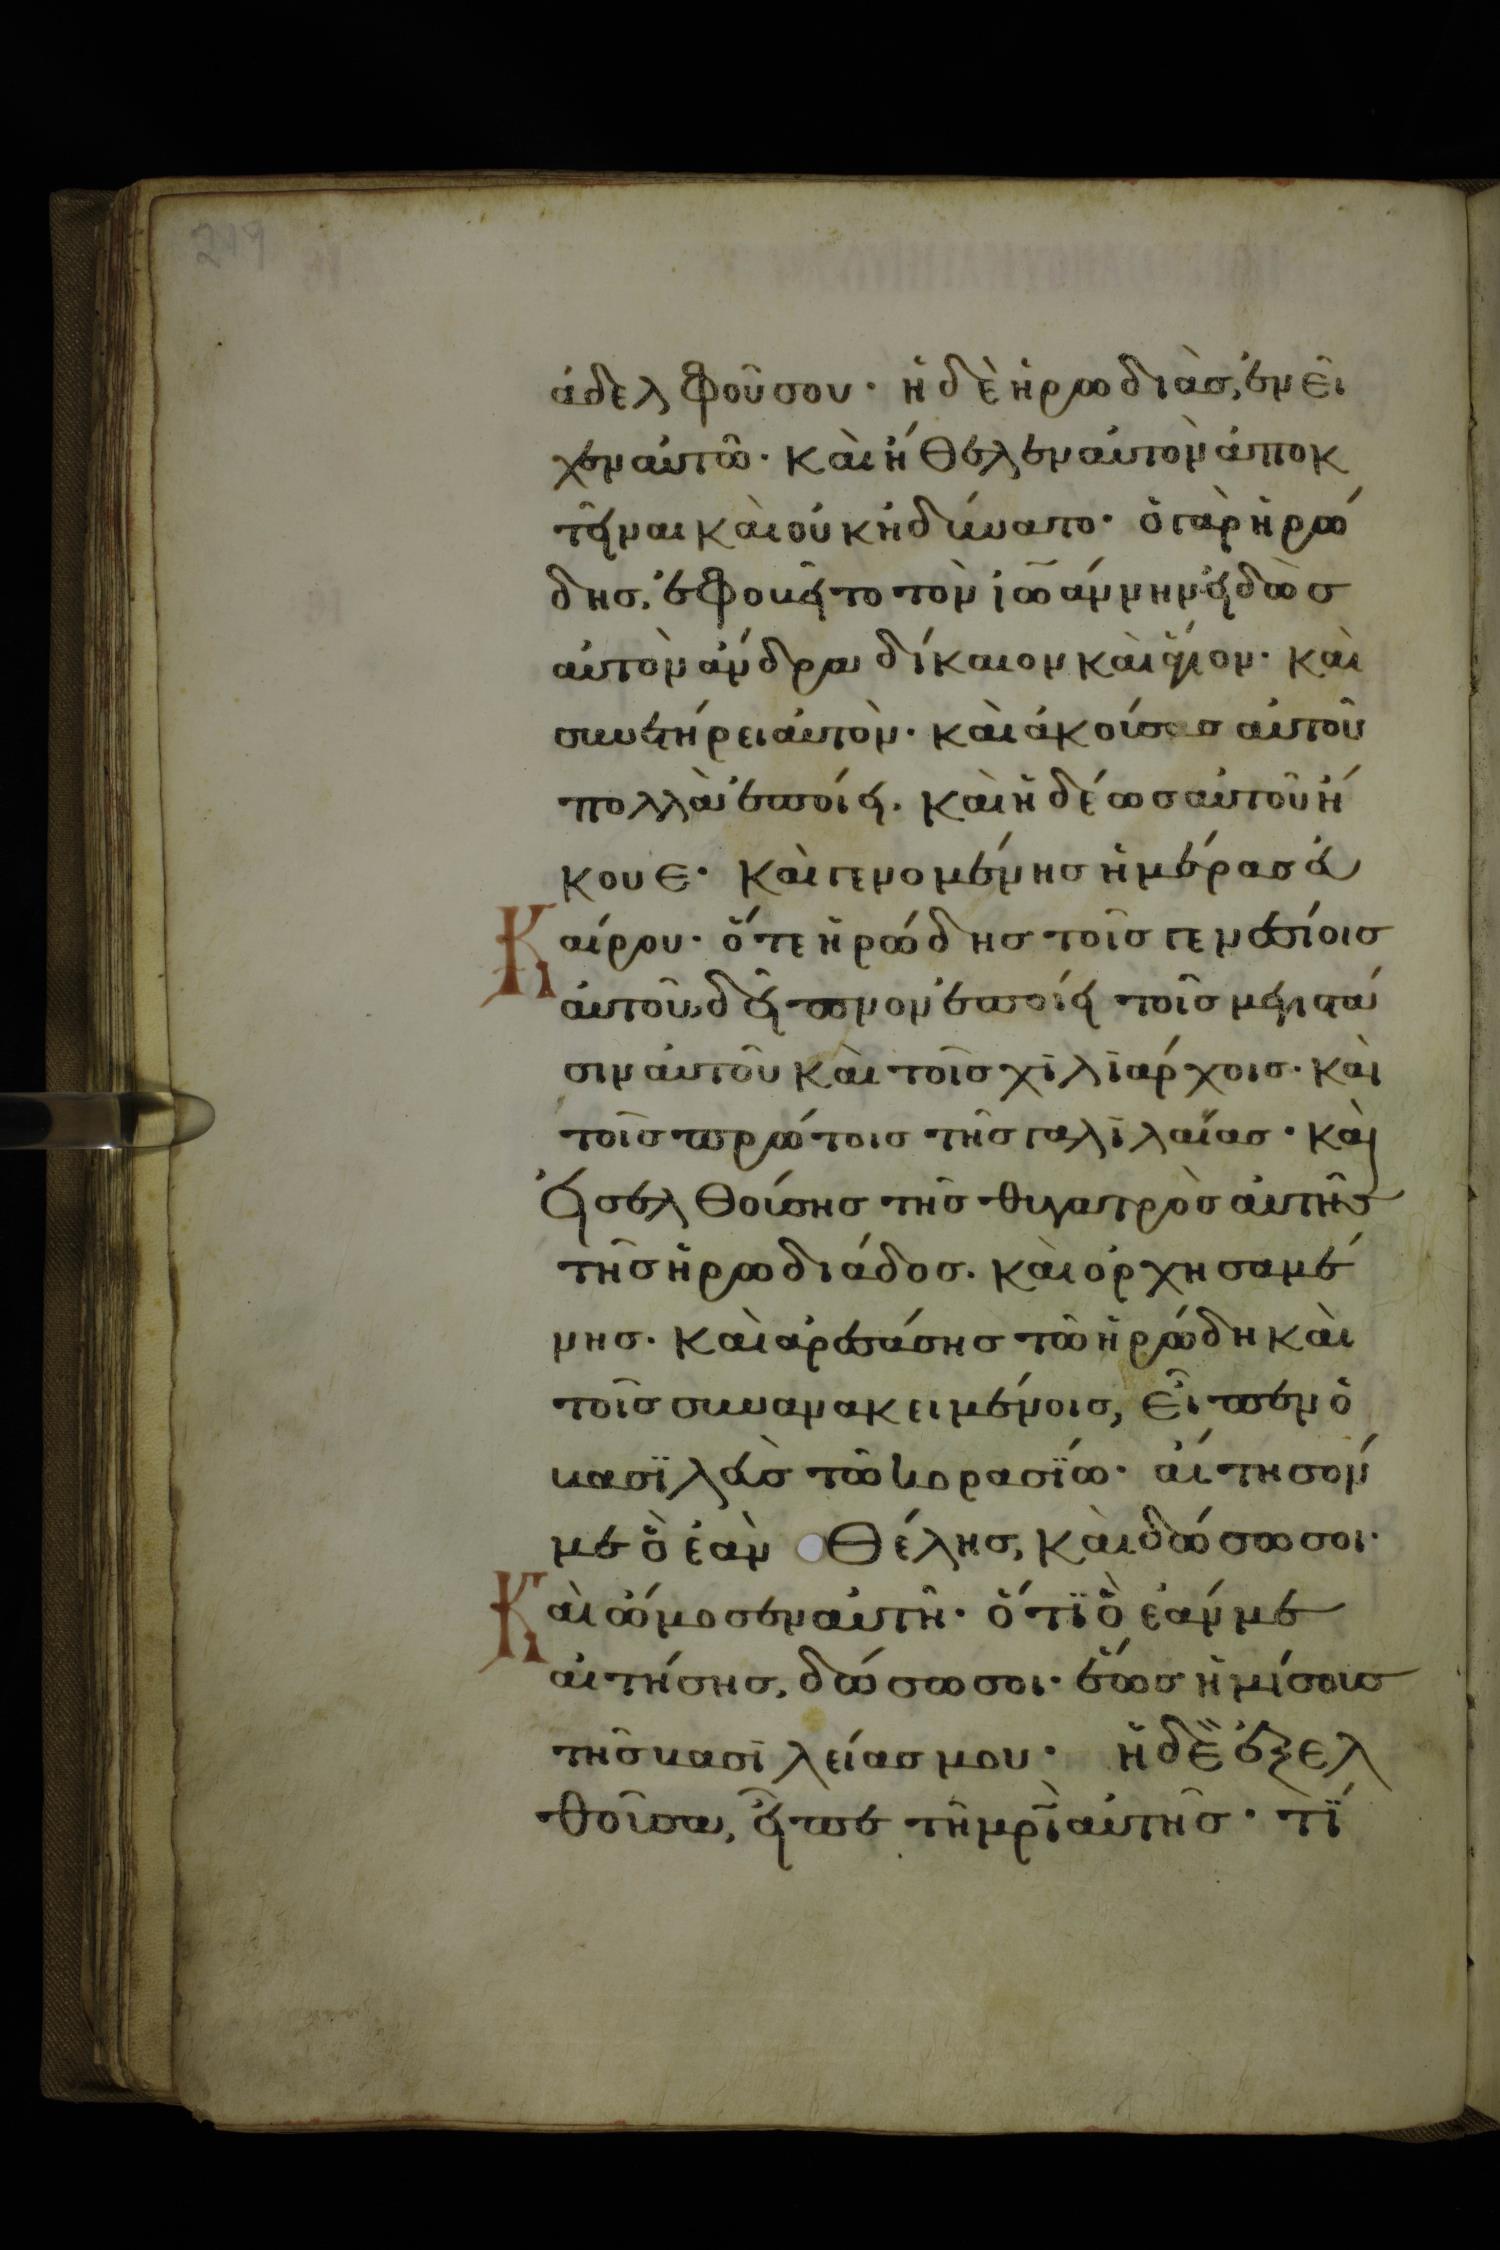 ἀδελφοῦ σου· ἡ δὲ ἡρωδιὰς, ἐνεῖ
χεν αὐτῶ· καὶ ἤθελεν αὐτὸν ἀποκ
τεῖναι καὶ οὐκ ἠδύνατο· ὁ γὰρ ἡρώ
δης, ἐφοβεῖτο τὸν ἰωάννην εἰδὼς
αὐτὸν ἄνδρα δίκαιον καὶ ἅγιον· καὶ
συνετήρει αὐτὸν· καὶ ἀκούσας αὐτοῦ
πολλὰ ἐποίει. καὶ ἡδέως αὐτοῦ ἤ
κουε· καὶ γενομένης ἡμέρας εὐ
Καίρου· ὅτε ἡρώδης τοῖς γενεσίοις
αὐτοῦ, δεῖπνον ἐποίει τοῖς μεγιστά
σιν αὐτοῦ καὶ τοῖς χιλιάρχοις· καὶ
τοῖς πρώτοις τῆς γαλιλαίας· καὶ
εἰσελθούσης τῆς θυγατρὸς αὐτῆς
τῆς ἡρωδιάδος. καὶ ὀρχησαμέ
νης· καὶ ἀρεσάσης τῶ ἡρώδη καὶ
τοῖς συνανακειμένοις, εἶπεν ὁ
βασϊλεὺς τῶ κορασϊω· αἴτησόν
με ὃ ἐὰν θέλης, καὶ δώσω σοι·
Καὶ ὤμοσεν αὐτῆ· ὅτϊ ὃ ἐάν με
αἰτήσης, δώσω σοι· ἕως ἡμίσους
τῆς βασιλείας μου· ἡ δὲ ἐξελ
θοῦσα, εἶπε τῆ μρὶ αὐτῆς· τί